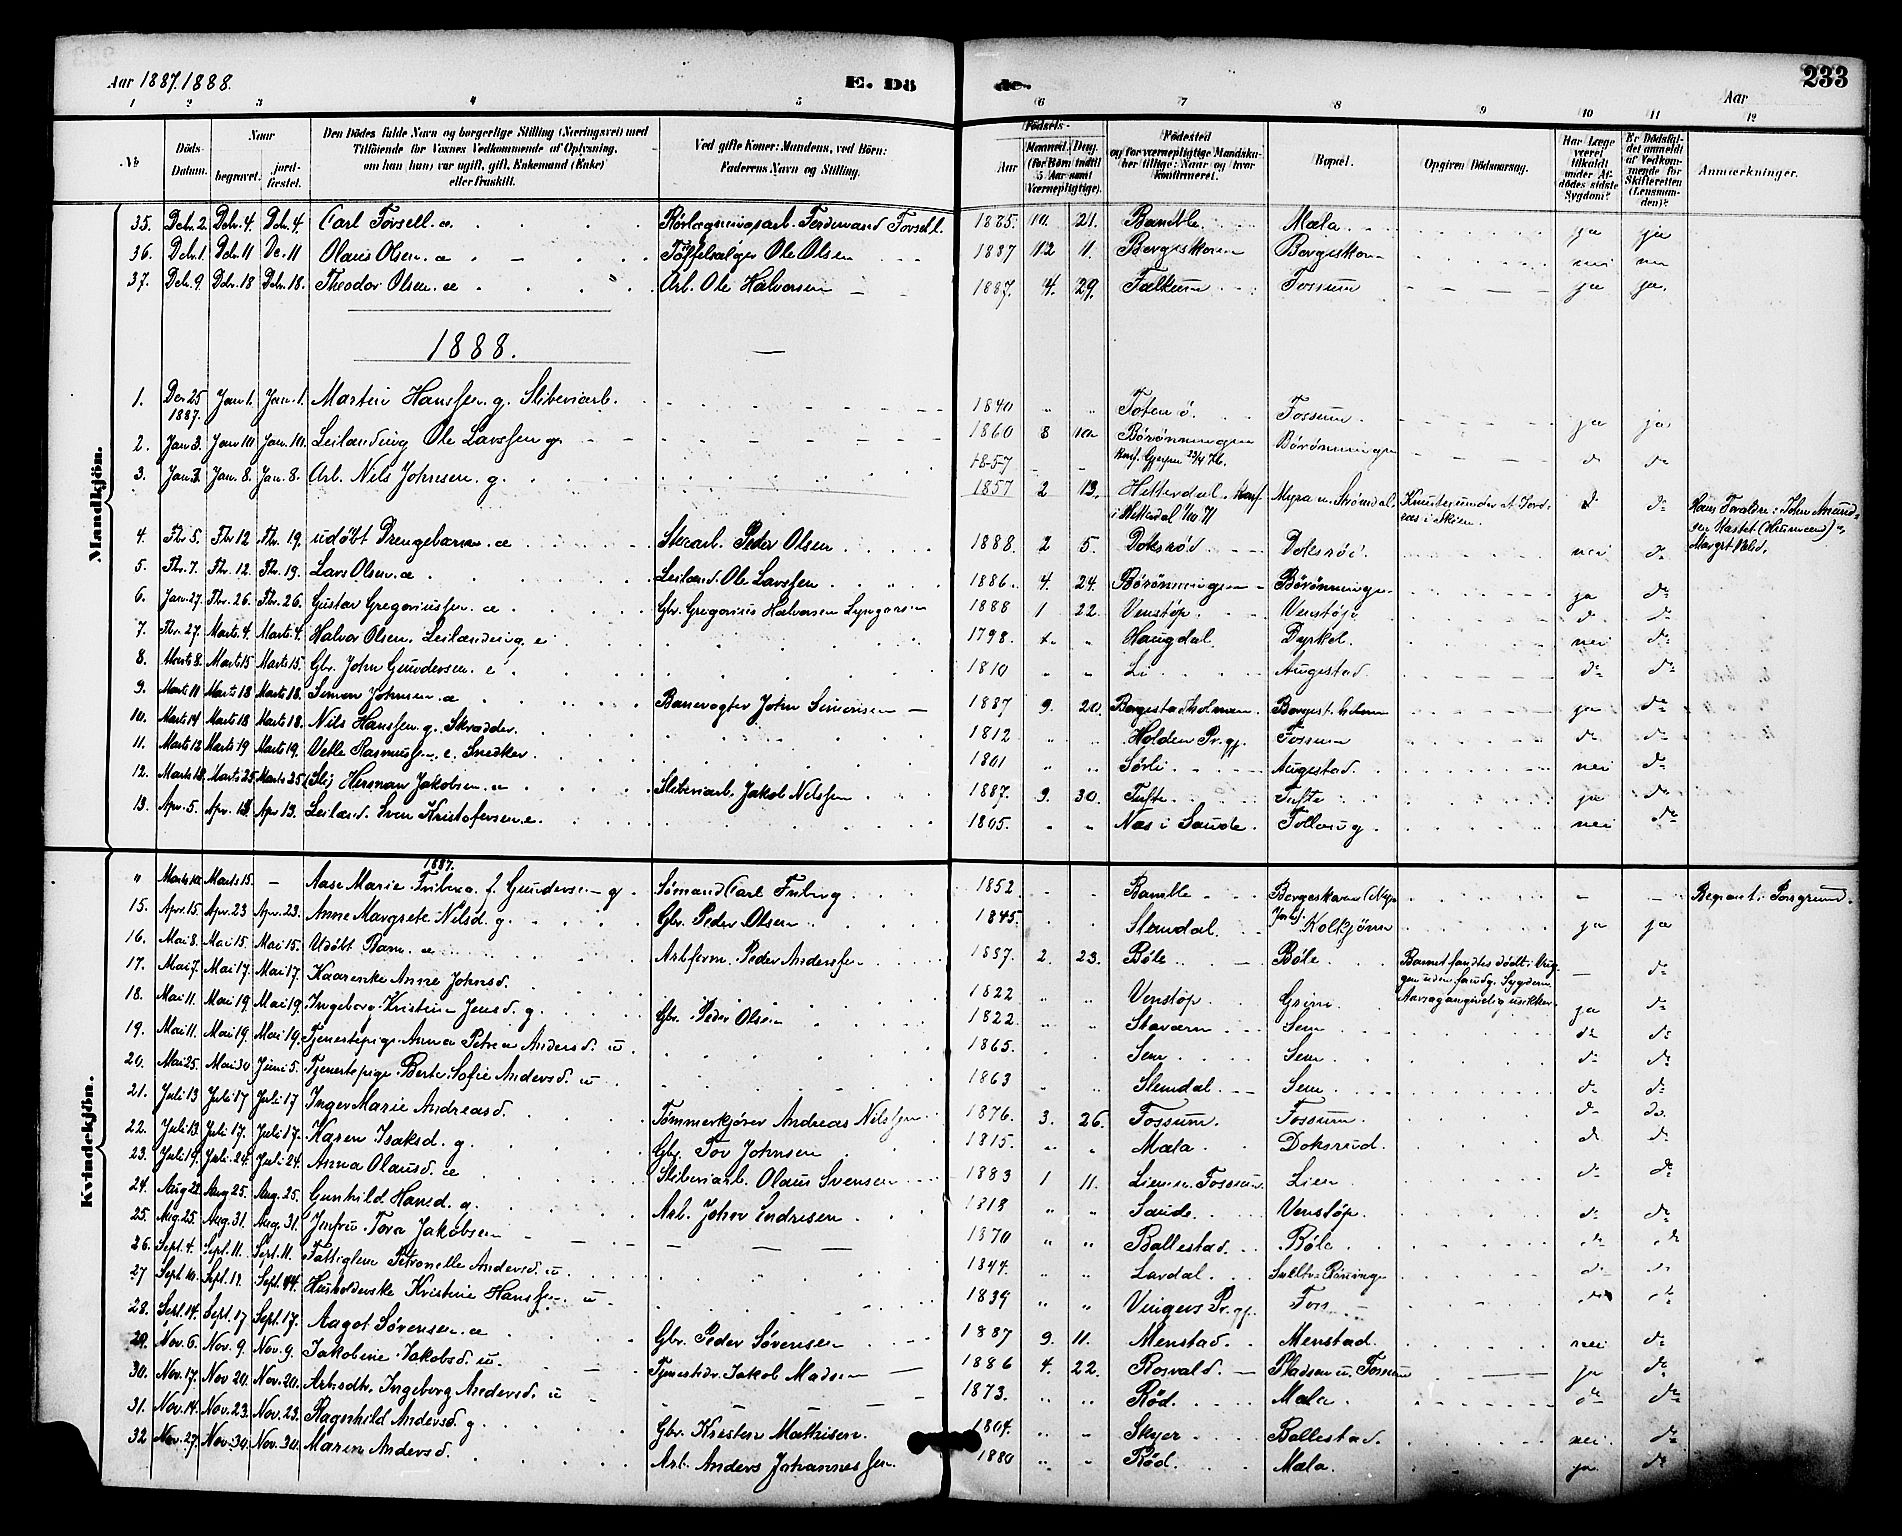 Aar 1887.1888. E. Dö de. Aar 233
1 2 3 4 5 6 7 8 9 10 11 12
No Döds-Datum. Naar begravet. jordfæstet. Den Dödes fulde Navn og borgerlige Stilling (Næringsvei) med Tilföiende for Voxnes Vedkommende af Oplysning, om han (hun) var ugift, gift, Enkemand (Enke) eller fraskilt. Ved gifte Koner: Mandens, ved Börn: Faderens Navn og Stilling. Födsels- Aar Maaned. Dag. (for Börn indtil 5 Aar samt Værnepligtige). Födested og for værnepligtige Mandskaber tillige: Naar og hvor konfirmeret. Bopæl. Opgiven Dödsaarsag. Har Læge været tilkaldt under Afdödes sidste Sygdom? Er Dödsfaldet anmeldt af Vedkommende for Skifteretten (Lensmanden)? Anmærkninger.
Mandkjön.
35. Dcbr. 2. Dcbr. 4. Dcbr. 4. Carl Forsell. æ Rörlægningsarb. Ferdinand Forsell. 1885. 10. 21. Bamble Mæla ja ja
36. Dcbr. 1. Dcbr. 11 De. 11 Olaus Olsen. æ Töffelsælger Ole Olsen 1887 12 1. Borgeskoven Borgeskoven nei nei
37. Dcbr. 9 Dcbr. 18 Dcbr. 18. Theodor Olsen. æ Arb. Ole Halvorsen 1887. 4. 29. Falkum Fossum ja ja.
1888.
1. Dec 25 1887. Jan 1. Jan. 1. Martin Hanssen. g. Sliberiarb. 1840 Toten ö. Fossum. ja ja
2. Jan. 3. Jan 10 Jan. 10. Leilænding Ole Larssen g. 1860 8 10 Börönningen Konf. Gjerpen 23/4 76. Börönningen d. do
3. Jan. 3. Jan. 8. Jan. 8. Arb. Nils Johnsen. g. 1857 1857 2 13. Hitterdal. Konf. i Hitterdal 1/10 71 Myra u. Strömdal. Knustes under et Jordras i Skien. d. do Hans Forældre: John Amundsen Kastet (Husmand) & Margit Nilsd.
4. Fbr. 5. Fbr 12 Fbr. 19. udöbt Drengebarn. æ Stearb. Peder Olsen 1888. 2 5. Doksröd Doksröd. nei do
5. Fbr. 7. Fbr. 12 Fbr. 19. Lars Olsen. æ Leilænd. Ole Larssen 1886. 4. 24. Börönningen Börönningen ja do
6. Jan. 27. Fbr. 26. Fbr. 26. Gustav Gregoriussen. æ Gbr. Gregorius Halvorsen 1888 1 22. Venstöp. Venstöp d. do
7. Fbr. 27. Marts 4. Marts 4. Halvor Olsen. Leilænding. e 1798. Haugdal. Dyrkol. nei do
8. Marts 8. Marts 15. Marts 15. Gbr. John Gundersen. e 1810 Li Augestad. do do
9. Marts 11 Marts 18 Marts 18. Simon Johnsen. æ Banevogter John Simonsen 1887 9. 20. Borgestadholmen. Borgest. holmen ja do
10. Marts 14 Marts 18 Marts 18. Nils Hanssen. g. Skrædder. 1812 Holden Pr.gj. Fossum do do
11. Marts 12 Marts 19 Marts 19. Vetle Rasmussen. e. Snedker. 1801 Sörli Augestad. nei do
12. Marts 18. Marts 25 Marts 25 Herman Jakobsen. æ Sliberiarb. Jakob Nilssen 1887. 9. 30. Tufte Tufte ja do
13. Apr. 5. Apr. 13 Apr 13. Leilænd. Sven Kristofersen. e. 1805. Næs i Saude. Follaug. nei do
Kvindekjön.
" Marts 10. Marts 15. — Aase Marie Friberg f. Gundersen g 1887. Sömand Carl Friberg 1852 Bamble Borgeskoven — — Begravet i Porsgrund.
15. Apr. 15. Apr. 23 Apr. 23. Anne Margrete Nilsd. g. Gbr. Peder Olsen 1845. Slemdal. Kolkjönn ja ja
16. Mai 8. Mai 15. Mai 15. Udöbt Barn. æ Arbform. Peder Anderssen 1887 2. 23. Böle Böle Barnet fandtes dödt i Vuggen uden foreg. Sygdom. Aarsag angivelig usikker. — do
17. Mai 7. Mai 17. Mai 17. Kaarenke Anne Johnsd. 1822 Venstöp Grini ja do
18. Mai 11. Mai 19 Mai 19. Ingeborg Kristine Jensd. g. Gbr. Peder Olsen 1822. Stavern Sem do do
19. Mai 11. Mai 19. Mai 19. Tjenestepige Anna Petrea Andersd. u 1865. Sem Sem do do
20. Mai 25. Mai 30 Juni 5. Tjenestepige Berte Sofie Andersd. u 1863 Slemdal. Sem do d.
21. Juli 13 Juli 17 Juli 17 Inger Marie Andreasd. Tömmerkjörer Andreas Nilssen 1876. 3. 26. Fossum. Fossum. do do.
22. Juli 13. Juli 17. Juli 17. Karen Isaksd. g. Gbr. Tov Johnsen 1815. Mæla Doksrud. do do
23. Juli 19. Juli 24. Juli 24. Anna Olausd. æ Sliberiarb. Olaus Svensen 1883 1 11. Lien u. Fossum. Lien do do
24. Aug 22. Aug 25. Aug. 25. Gunhild Hansd. g. Arb. John Endresen 1818 Saude. Venstöp. do do
25. Aug. 25. Aug. 31. Aug. 31. Jmfru. Tora Jakobsen 1870 Ballestad. Böle do do
26. Sept. 4. Sept. 11. Sept. 11. Fattiglem Petronelle Andersd. u. 1844. Lardal. do do
27 Sept. 10. Sept. 11. Sept. Husholderske Kristine Hanssen. u. 1839 Vingers Pr.gj. Foss do do
28. Sept. 14. Sept. 17 Sept. 17. Aagot Sörensen. æ Gbr. Peder Sörensen 1887 9. 11. Menstad. Menstad. nei do
29. Nov. 6. Nov. 9. Nov. 9. Jakobine Jakobsd. u. Tjenestkr. Jakob Madsen 1886 4. 22. Rosvald. Pladsen u. Fossum ja do
30. Nov. 17. Nov 20. Nov. 20. Arbsdtr. Ingeborg Andersd. u 1873. Röd. Mæla do do
31. Nov. 14. Nov. 23. Nov. 23. Ragnhild Andersd. g Gbr. Kristen Mathisen. 1804. Skyer Ballestad. nei do
32 Nov. 27. Nov. 30. Nov. 30. Maren Andersd. Arb. Anders Johannessen. 1880 Röd. Mæla. ja. do